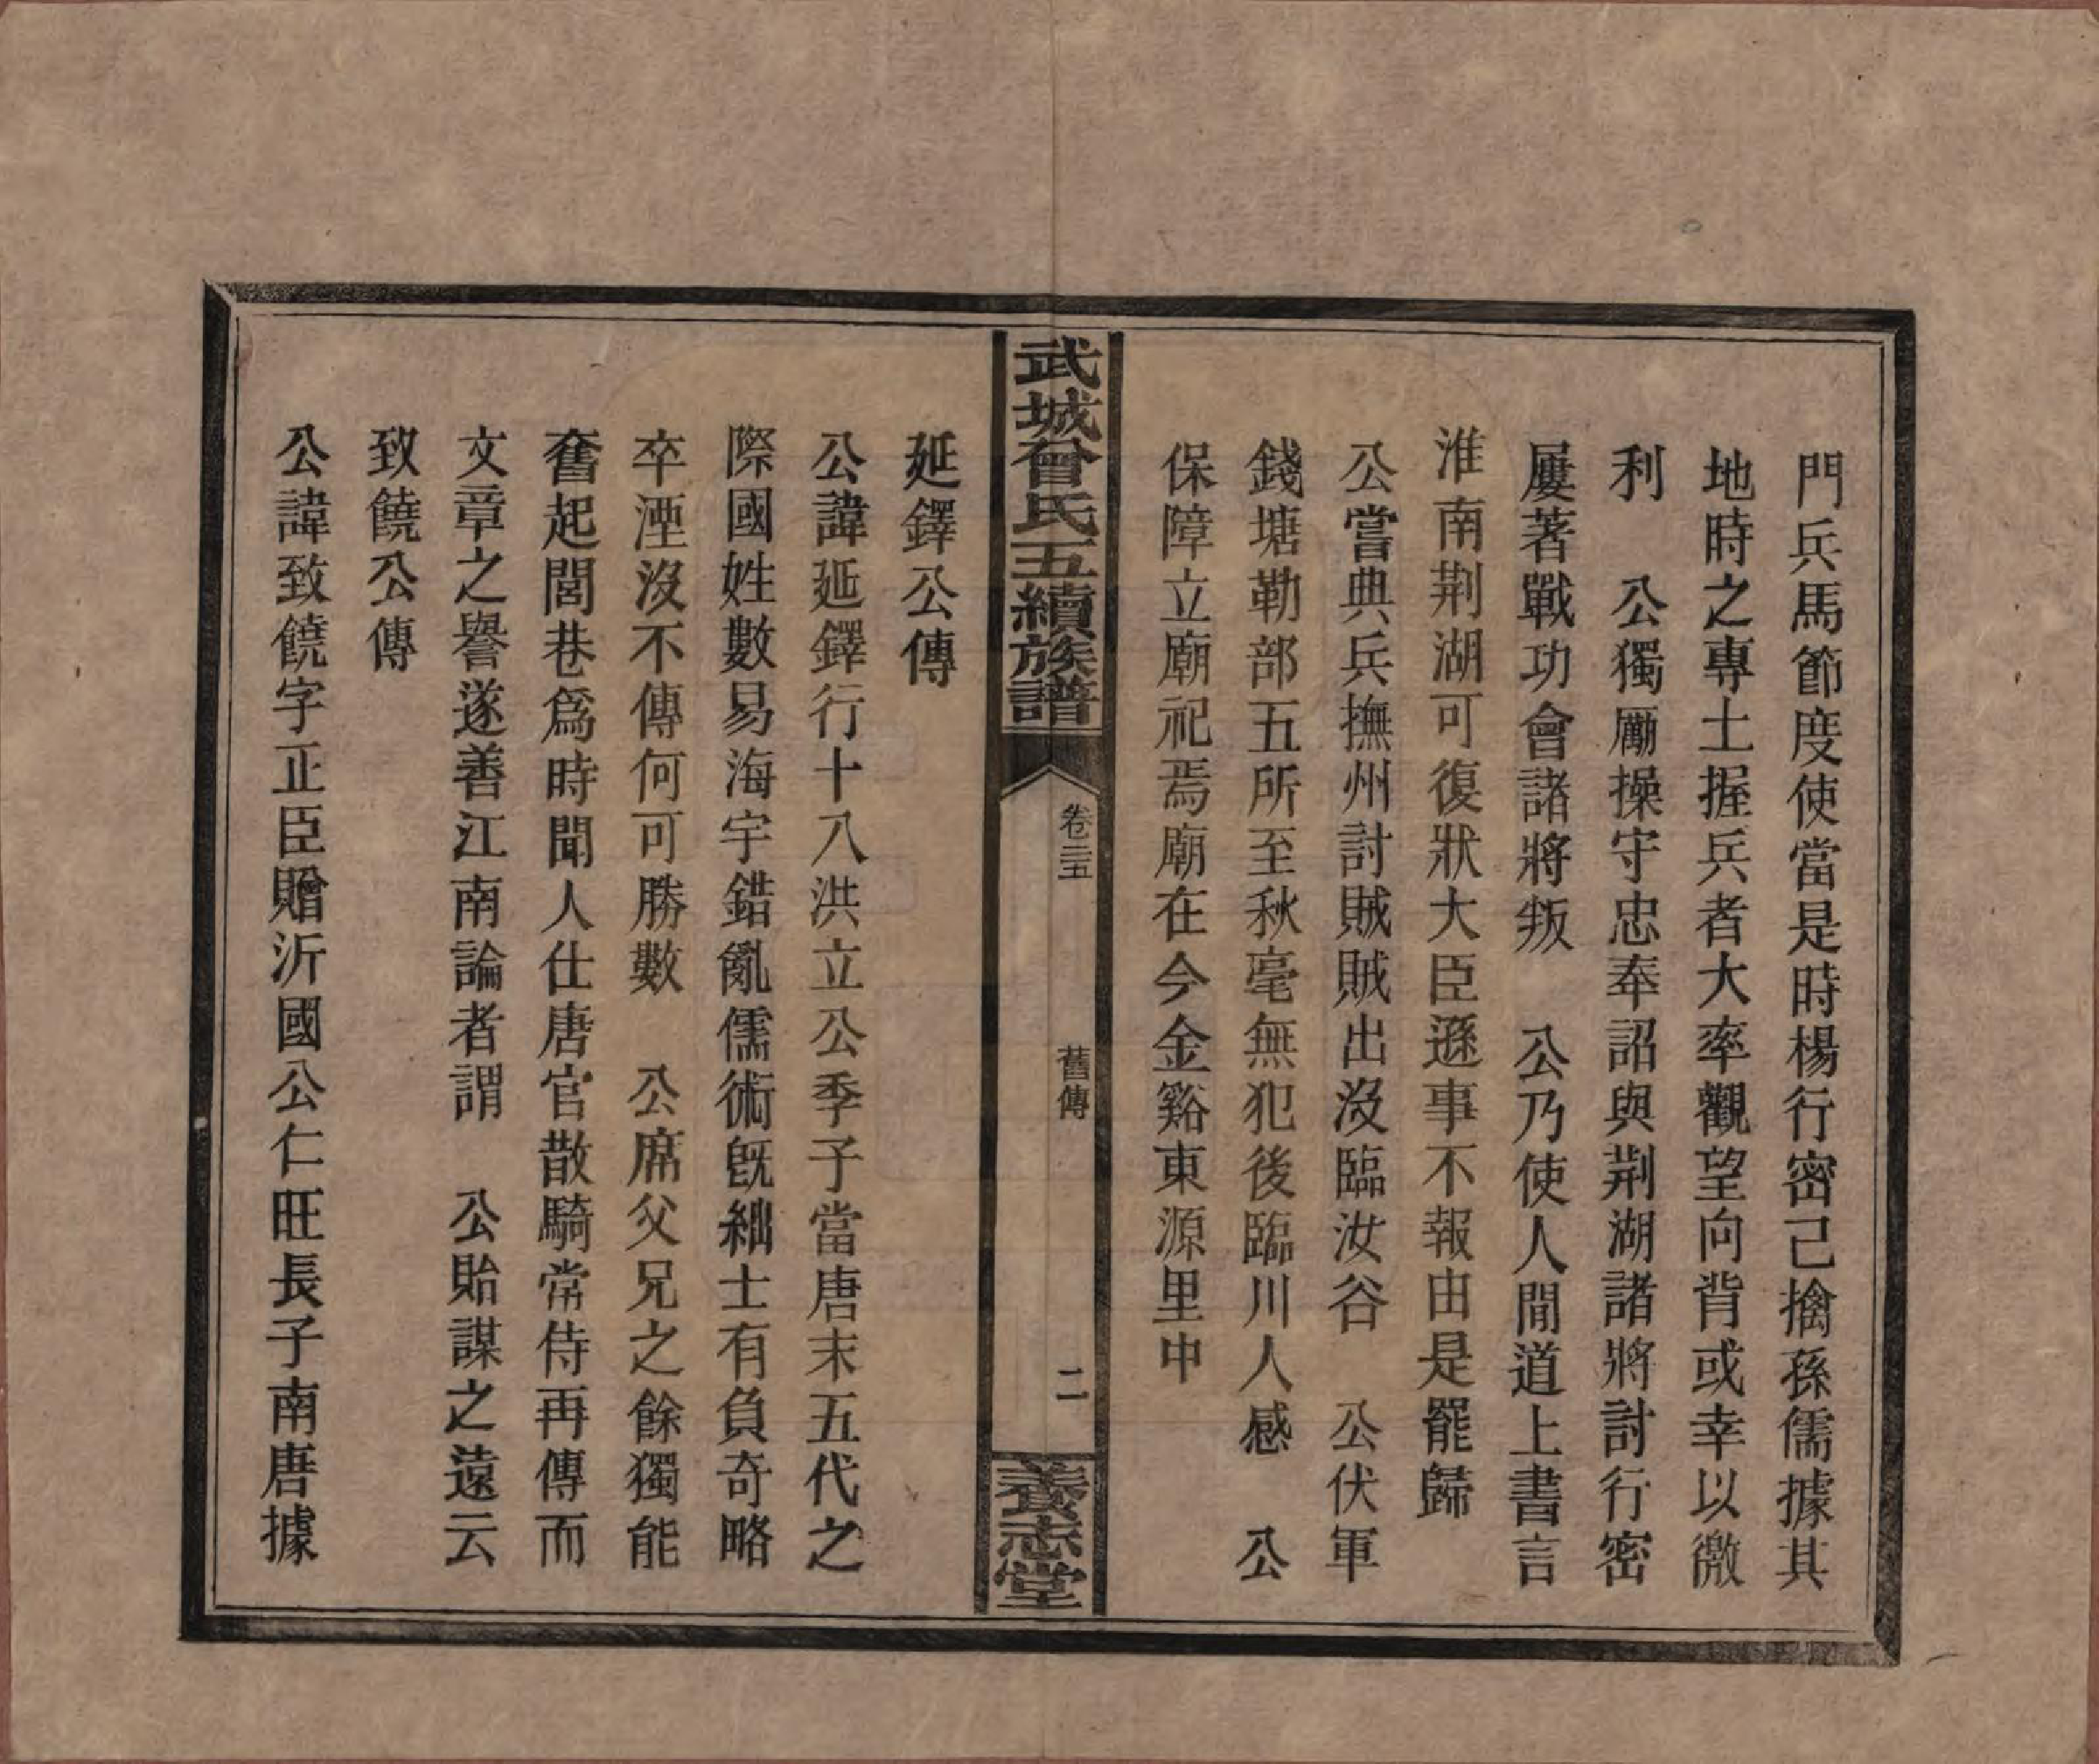 門兵馬節度使當是時楊行密已擒孫儒據其
地時之專土握兵者大率觀望向背或幸以徼
利　公獨勵操守忠奉詔與荆湖諸將討行密
屢著戰功會諸將叛　公乃使人間道上書言
淮南荆湖可復狀大臣遜事不報由是罷歸
公嘗典兵撫州討賊賊出沒臨汝谷　公伏軍
錢塘勒部五所至秋毫無犯後臨川人感　公
保障立廟祀焉廟在今金谿東源里中
武城曾氏五續族譜
卷三五
舊傳
二
養志堂
延鐸公傳
公諱延鐸行十八洪立公季子當唐末五代之
際國姓數易海宇錯亂儒術旣絀士有負奇略
卒湮沒不傳何可勝數　公席父兄之餘獨能
奮起閭巷爲時聞人仕唐官散騎常侍再傳而
文章之譽遂善江南論者謂　公貽謀之遠云
致饒公傳
公諱致饒字正臣贈沂國公仁旺長子南唐據